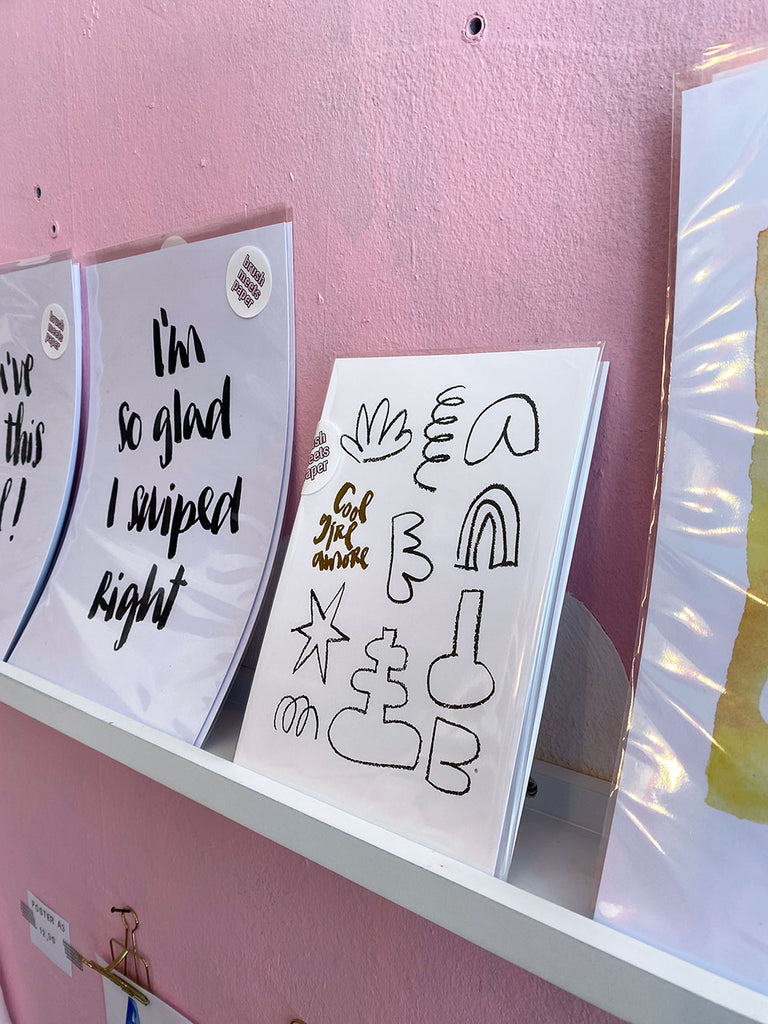 I've
this
!
brush
meets
paper
I'm
so glad
I swiped
Right
brush
meets
paper
ush
eets
aper
Cool
girl
amore
POSTER A5
12,50